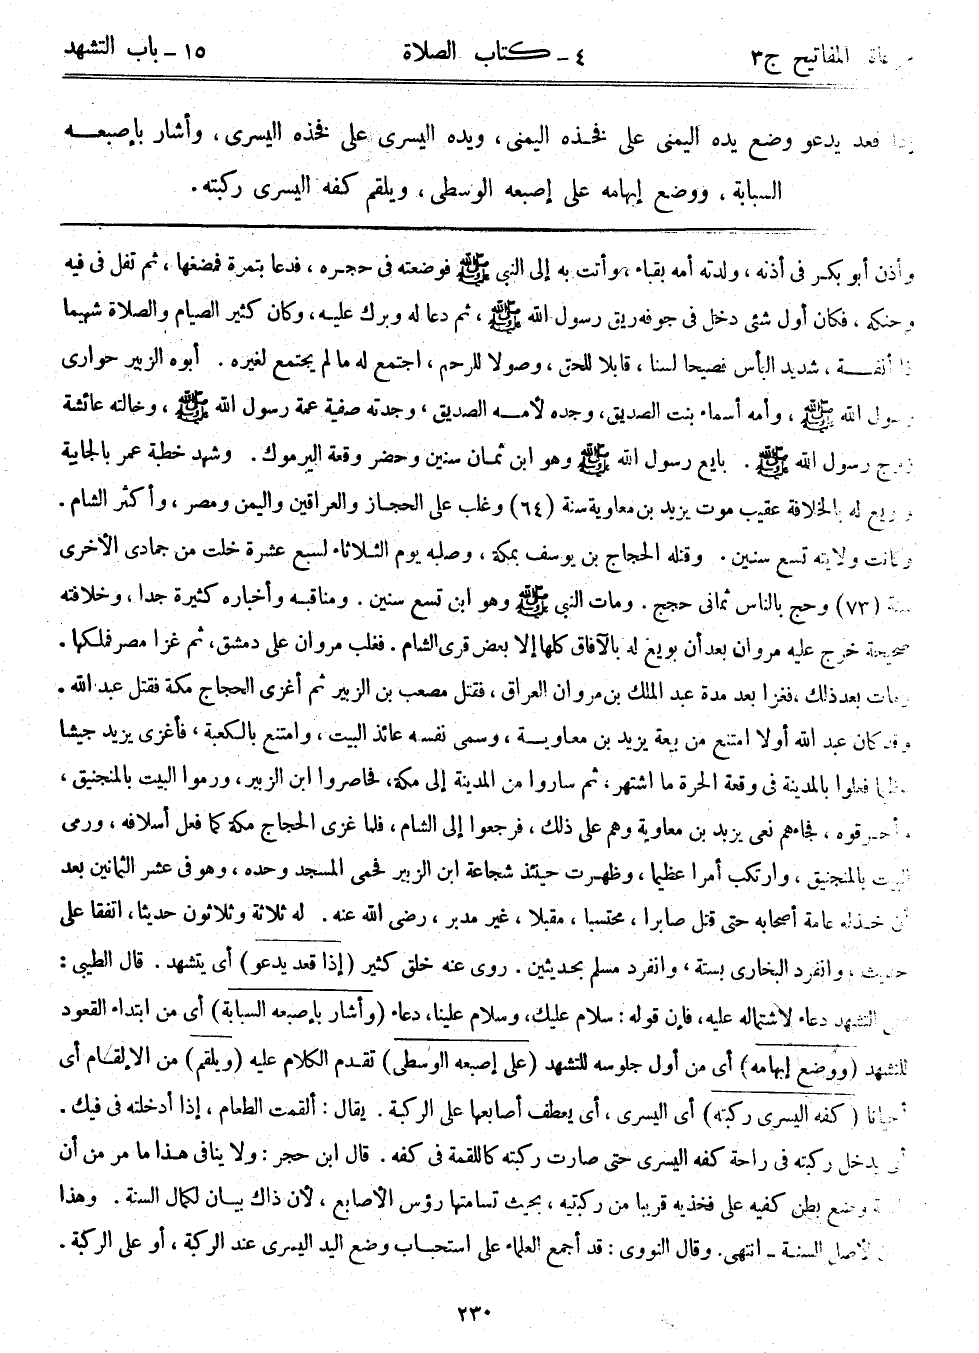 المفاتيح ج٣ ٤ ـ كتاب الصلاة ١٥ ـ باب التشهد
قعد يدعو وضع يده اليمنى على فخذه اليمنى، ويده اليسرى على فخذه اليسرى، وأشار بإصبعه
السبابة، ووضع إبهامه على إصبعه الوسطى، ويلقم كفه اليسرى ركبته.
وأذن أبو بكر فى أذنه، ولدته أمه بقباء، وأتت به إلى النبي ﷺ فوضعته فى حجره، فدعا بتمرة فمضغها، ثم تفل فى فيه
وحنكه، فكان أول شئى دخل فى جوفه ريق رسول الله ﷺ، ثم دعا له وبرك عليه، وكان كثير الصيام والصلاة شهيما
ذا أنفة، شديد البأس فصيحا لسنا، قابلا للحق، وصولا للرحم، اجتمع له ما لم يجتمع لغيره. أبوه الزبير حوارى
رسول الله ﷺ، وأمه أسماء بنت الصديق، وجده لأمه الصديق، وجدته صفية عمة رسول الله ﷺ، وخالته عائشة
زوج رسول الله ﷺ. بايع رسول الله ﷺ وهو ابن ثمان سنين وحضر وقعة اليرموك. وشهد خطبة عمر بالجابية
وبويع له بالخلافة عقيب موت يزيد بن معاوية سنة (٦٤) وغلب على الحجاز والعراقين واليمن ومصر، وأكثر الشام.
وكانت ولايته تسع سنين. وقتله الحجاج بن يوسف بمكة، وصلبه يوم الثلاثاء لسبع عشرة خلت من جمادى الأخرى
سنة (٧٣) وحج بالناس ثمانى حجج. ومات النبي ﷺ وهو ابن تسع سنين. ومناقبه وأخباره كثيرة جدا، وخلافته
صحيحة خرج عليه مروان بعد أن بويغ له بالآفاق كلها إلا بعض قرى الشام. فغلب مروان على دمشق، ثم غزا مصر فملكها.
ومات بعد ذلك، فغزا بعد مدة عبد الملك بن مروان العراق، فقتل مصعب بن الزبير ثم أغزى الحجاج مكة فقتل عبد الله.
وقد كان عبد الله أولا امتنع من بيعة يزيد بن معاوية، وسمى نفسه عائذ البيت، وامتنع بالكعبة، فأغزى يزيد جيشا
عظيما فعلوا بالمدينة فى وقعة الحرة ما اشتهر، ثم ساروا من المدينة إلى مكة، فحاصروا ابن الزبير، ورموا البيت بالمنجنيق،
وأحرقوه، فجاءهم نعى يزيد بن معاوية وهم على ذلك، فرجعوا إلى الشام، فلما غزى الحجاج مكة كما فعل أسلافه، ورمى
البيت بالمنجنيق، وارتكب أمرا عظيما، وظهرت حينئذ شجاعة ابن الزبير فحمى المسجد وحده، وهو فى عشر الثمانين بعد
أن خذله عامة أصحابه حتى قتل صابرا، محتسبا، مقبلا، غير مدبر، رضى الله عنه. له ثلاثة وثلاثون حديثا، اتفقا على
حديث، وانفرد البخارى بستة، وانفرد مسلم بحديثين. روى عنه خلق كثير (إذا قعد يدعو) أى يتشهد. قال الطيبى:
التشهد دعاء لاشتماله عليه، فإن قوله: سلام عليك، وسلام علينا، دعاء (وأشار بإصبعه السبابة) أى من ابتداء القعود
للتشهد (ووضع إبهامه) أى من أول جلوسه للتشهد (على إصبعه الوسطى) تقدم الكلام عليه (ويلقم) من الإلقام أى
أحيانا (كفه اليسرى ركبته) أى اليسرى، أى يعطف أصابعها على الركبة. يقال: ألقمت الطعام، إذا أدخلته فى فيك.
أى يدخل ركبته فى راحة كفه اليسرى حتى صارت ركبته كاللقمة فى كفه. قال ابن حجر: ولا ينافى هذا ما مر من أن
وضع بطن كفيه على فخذيه قريبا من ركبتيه، بحيث تسامتها رؤس الأصابع، لأن ذاك بيان لكمال السنة. وهذا
لأصل السنة ـ انتهى. وقال النووى: قد أجمع العلماء على استحباب وضع اليد اليسرى عند الركبة، أو على الركبة.
٢٣٠